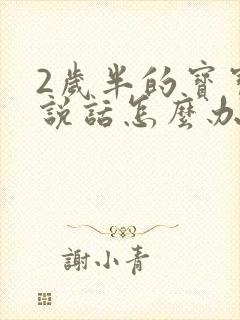 2歲半的寶
說話怎麼
謝小青